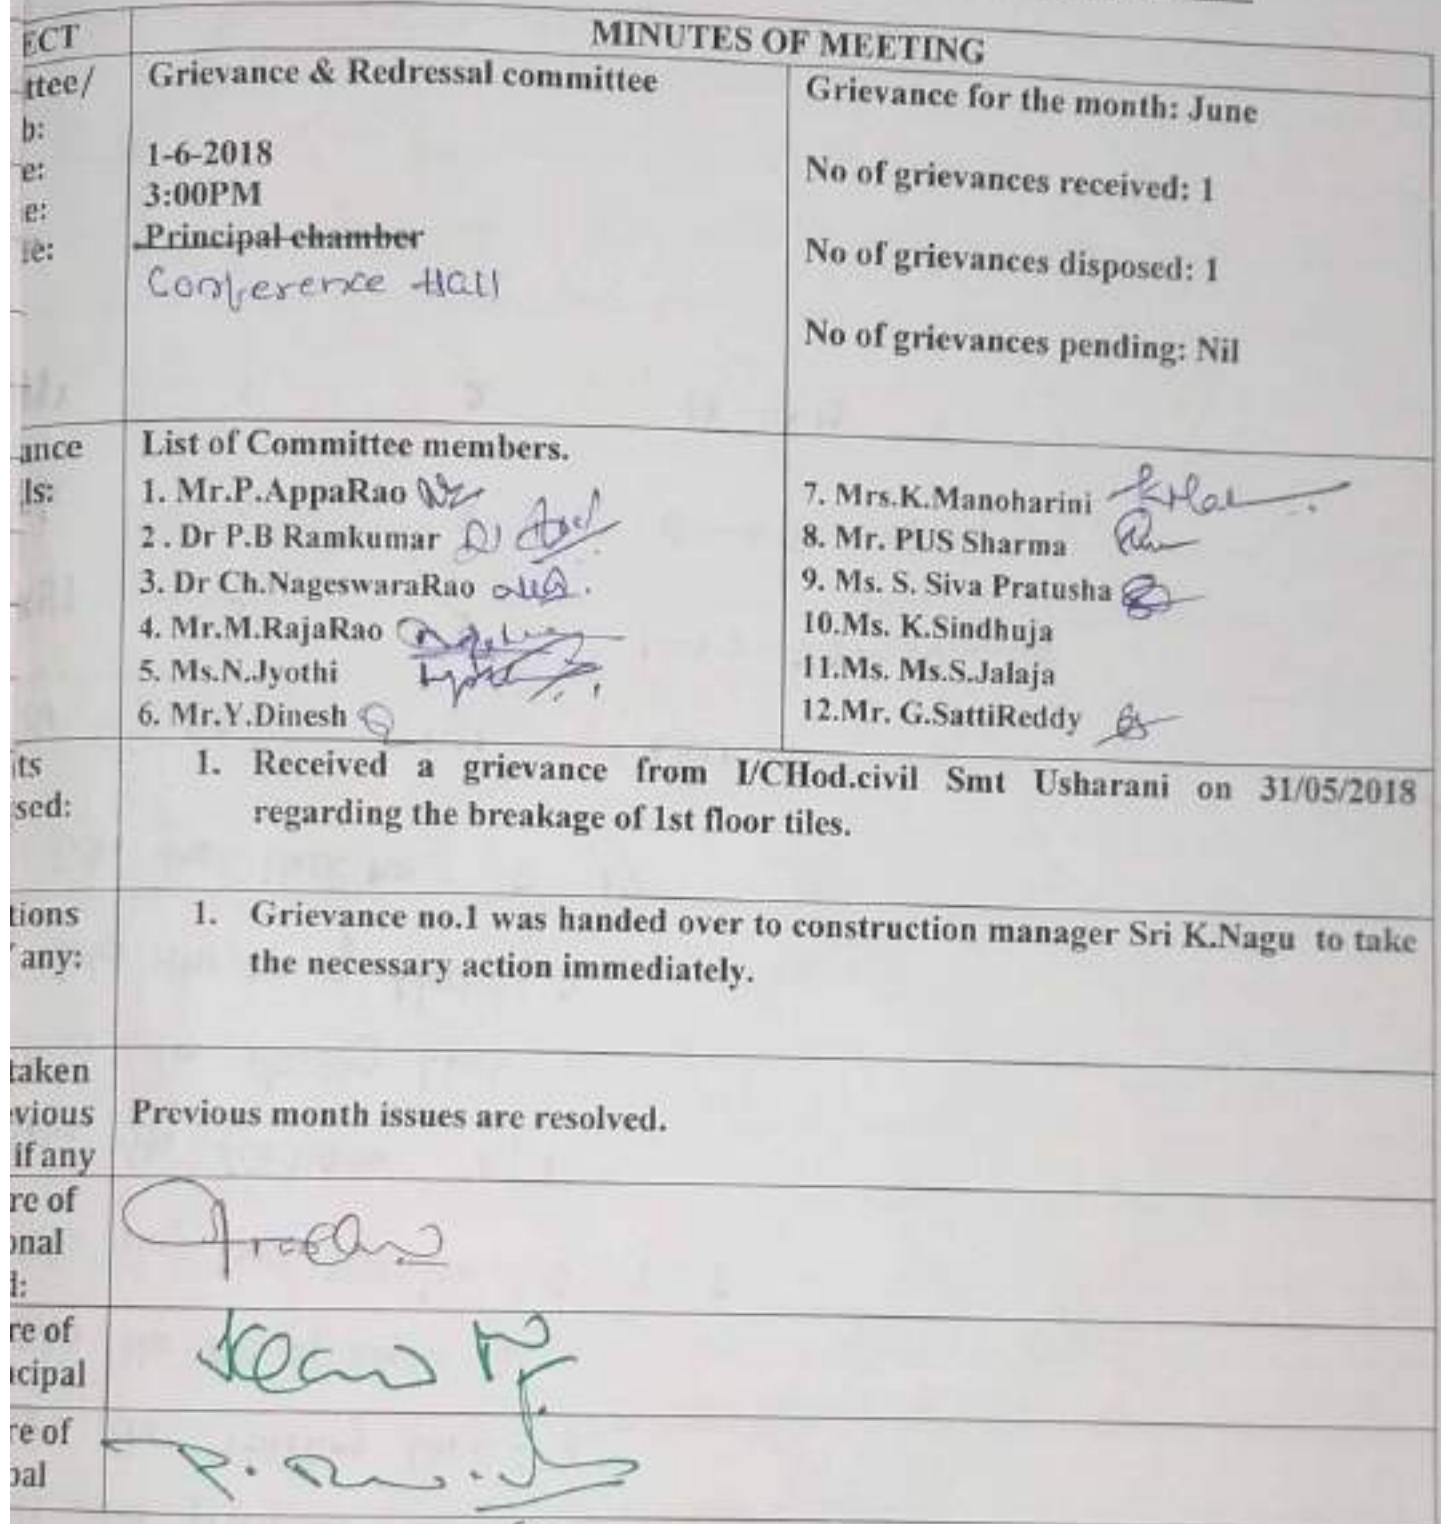 ECT MINUTES OF MEETING
ttee/ Grievance & Redressal committee
b:
e: 1-6-2018
e: 3:00PM
te: Principal chamber
Conference Hall
Grievance for the month: June
No of grievances received: 1
No of grievances disposed: 1
No of grievances pending: Nil
ance List of Committee members.
ls: 1. Mr.P.AppaRao
2 . Dr P.B Ramkumar
3. Dr Ch.NageswaraRao
4. Mr.M.RajaRao
5. Ms.N.Jyothi
6. Mr.Y.Dinesh
7. Mrs.K.Manoharini
8. Mr. PUS Sharma
9. Ms. S. Siva Pratusha
10.Ms. K.Sindhuja
11.Ms. Ms.S.Jalaja
12.Mr. G.SattiReddy
ts 1. Received a grievance from I/CHod.civil Smt Usharani on 31/05/2018
sed: regarding the breakage of 1st floor tiles.
tions 1. Grievance no.1 was handed over to construction manager Sri K.Nagu to take
any: the necessary action immediately.
taken
vious Previous month issues are resolved.
if any
re of
onal
d:
re of
ncipal
re of
pal